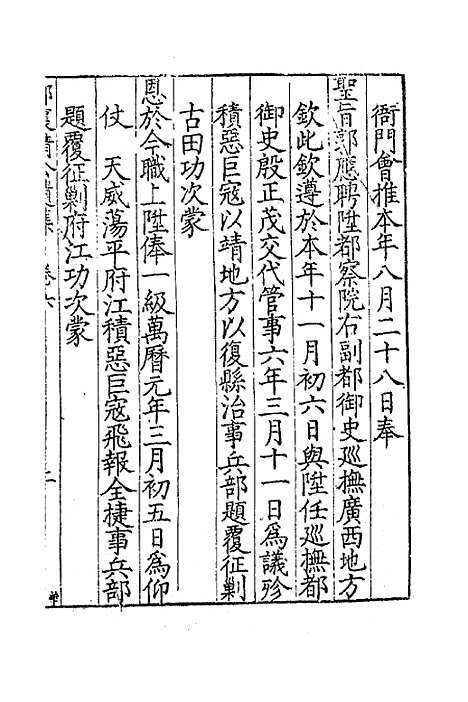 衙門會推本年八月二十八日奉
聖旨郭應聘陞都察院右副都御史巡撫廣西地方
欽此欽遵於本年十一月初六日與陞任巡撫都
御史殷正茂交代管事六年三月十一日為議殄
積惡巨寇以靖地方以復縣治事兵部題覆征剿
古田功次蒙
恩於今職上陞俸一級萬曆元年三月初五日為仰
仗　天威蕩平府江積惡巨寇飛報全捷事兵部
題覆征剿府江功次蒙
郭襄靖公遺集　卷六　二